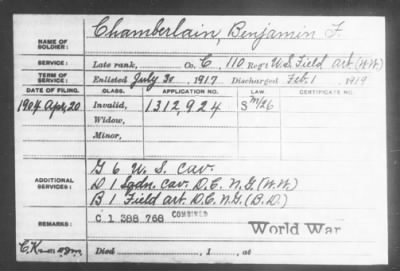 NAME OF SOLDIER: Chamberlain, Benjamin F.
SERVICE: Late rank, Co. C, 110 Reg't U.S. Field Art (W.W.)
TERM OF SERVICE: Enlisted July 30, 1917 Discharged Feb. 1, 1919
DATE OF FILING. CLASS. APPLICATION NO. LAW. CERTIFICATE NO.
1904 Apr. 20 Invalid, 1312,924
Widow,
Minor,
ADDITIONAL SERVICES: G 6 U.S. Cav.
D 1 Sqdn. Cav. D.C. N.G. (W.W.)
B 1 Field Art. D.C. N.G. (B.D.)
REMARKS: C 1 388 768 COMBINED
World War
Died , 1 , at